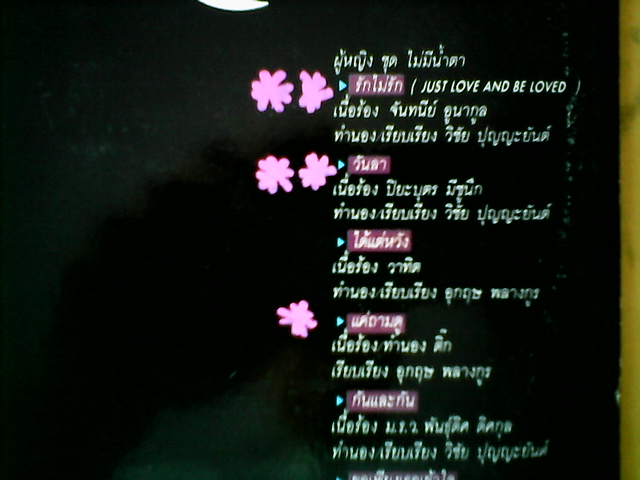 ผู้หญิง ชุด ไม่มีน้ำตา
รักไม่รัก ( JUST LOVE AND BE LOVED )
เนื้อร้อง จันทนีย์ อูนากูล
ทำนอง/เรียบเรียง วิชัย ปุญญะยันต์
วันลา
เนื้อร้อง ปิยะบุตร มีชูนึก
ทำนอง/เรียบเรียง วิชัย ปุญญะยันต์
ได้แต่หวัง
เนื้อร้อง วาทิต
ทำนอง/เรียบเรียง อุกฤษ พลางกูร
แค่ถามดู
เนื้อร้อง/ทำนอง ติ๊ก
เรียบเรียง อุกฤษ พลางกูร
กันและกัน
เนื้อร้อง ม.ร.ว. พันธุ์ดิศ ดิศกุล
ทำนอง/เรียบเรียง วิชัย ปุญญะยันต์